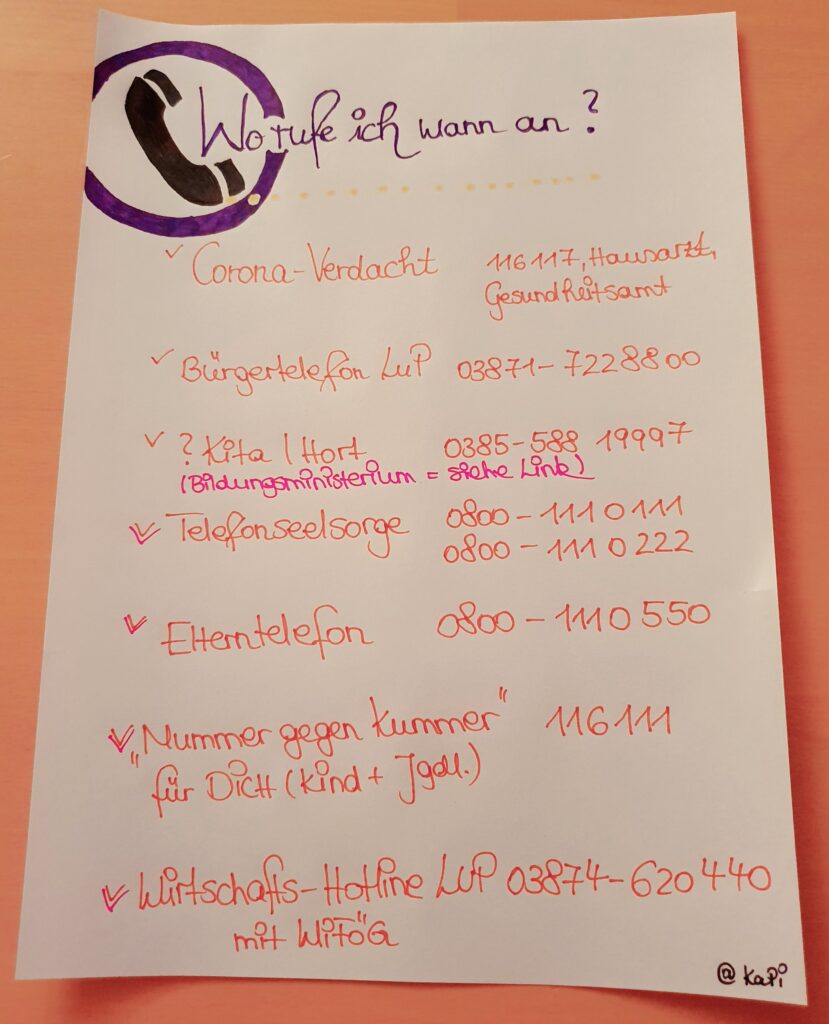 Wo rufe ich wann an?
Corona-Verdacht 116 117, Hausarzt,
Gesundheitsamt
Bürgertelefon LuP 03871-7228800
? Kita / Hort 0385-588 19997
(Bildungsministerium = siehe Link)
Telefonseelsorge 0800-1110111
0800-1110222
Elterntelefon 0800-1110 550
"Nummer gegen Kummer" 116 111
für Dich (Kind + Jgdl.)
Wirtschafts-Hotline LUP 03874-620 440
mit WiFöG
@ KaPi